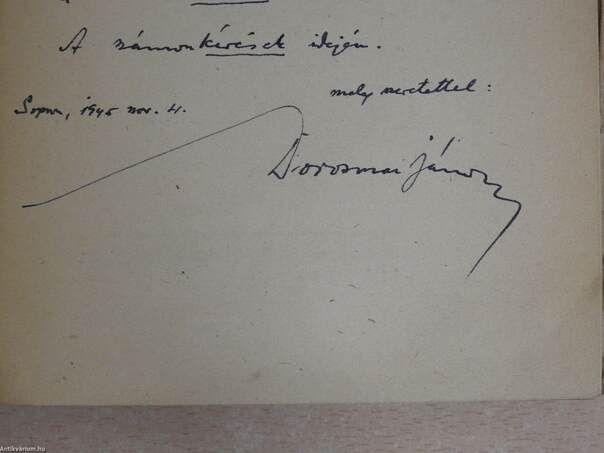 A számonkérések idején.
mely szeretettel:
Sopron, 1945 nov. 4.
Dorosmai János
Antikvárium.hu